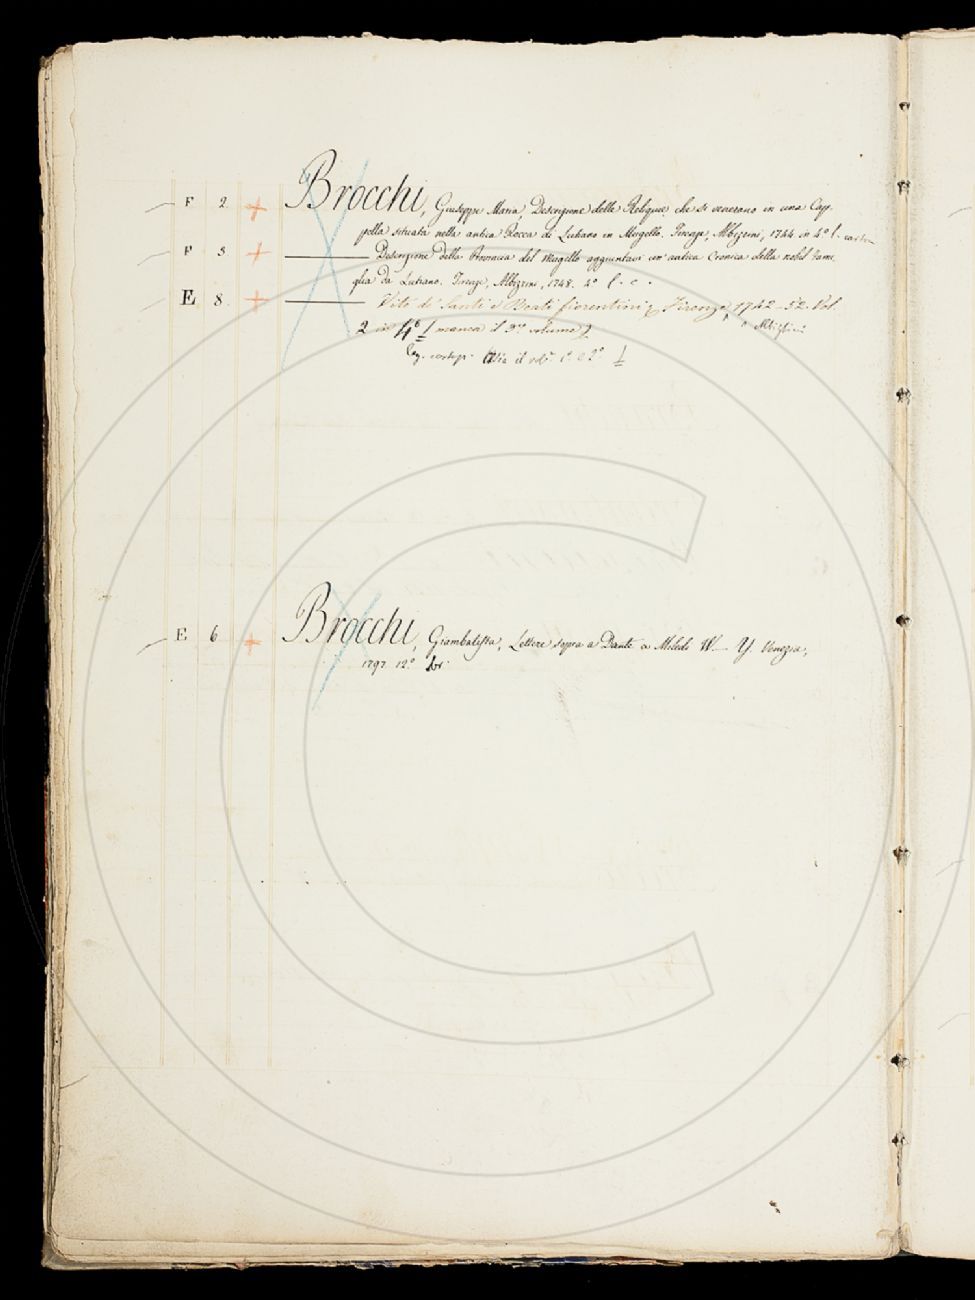 F 2 + Brocchi, Giuseppe Maria, Descrizione delle Reliquie che si venerano in una Cap-
pella situata nella antica Rocca di Lutiano in Mugello. Firenze, Albizzini, 1744 in 4° l. carton
F 5 + — Descrizione della Provincia del Mugello aggiuntavi un'antica Cronica della nobil fami-
glia da Lutiano. Firenze, Albizzini, 1748. 4° l. c.
E 8 + — Vite de' Santi e Beati fiorentini Firenze 1742-52. Vol.
2 in 4° manca il volume
leg. Via il vol. 1° e 2°
E 6 + Brocchi, Giambatista, Lettere sopra a Dante a Miledi W— Y. Venezia,
1797. 12° br.